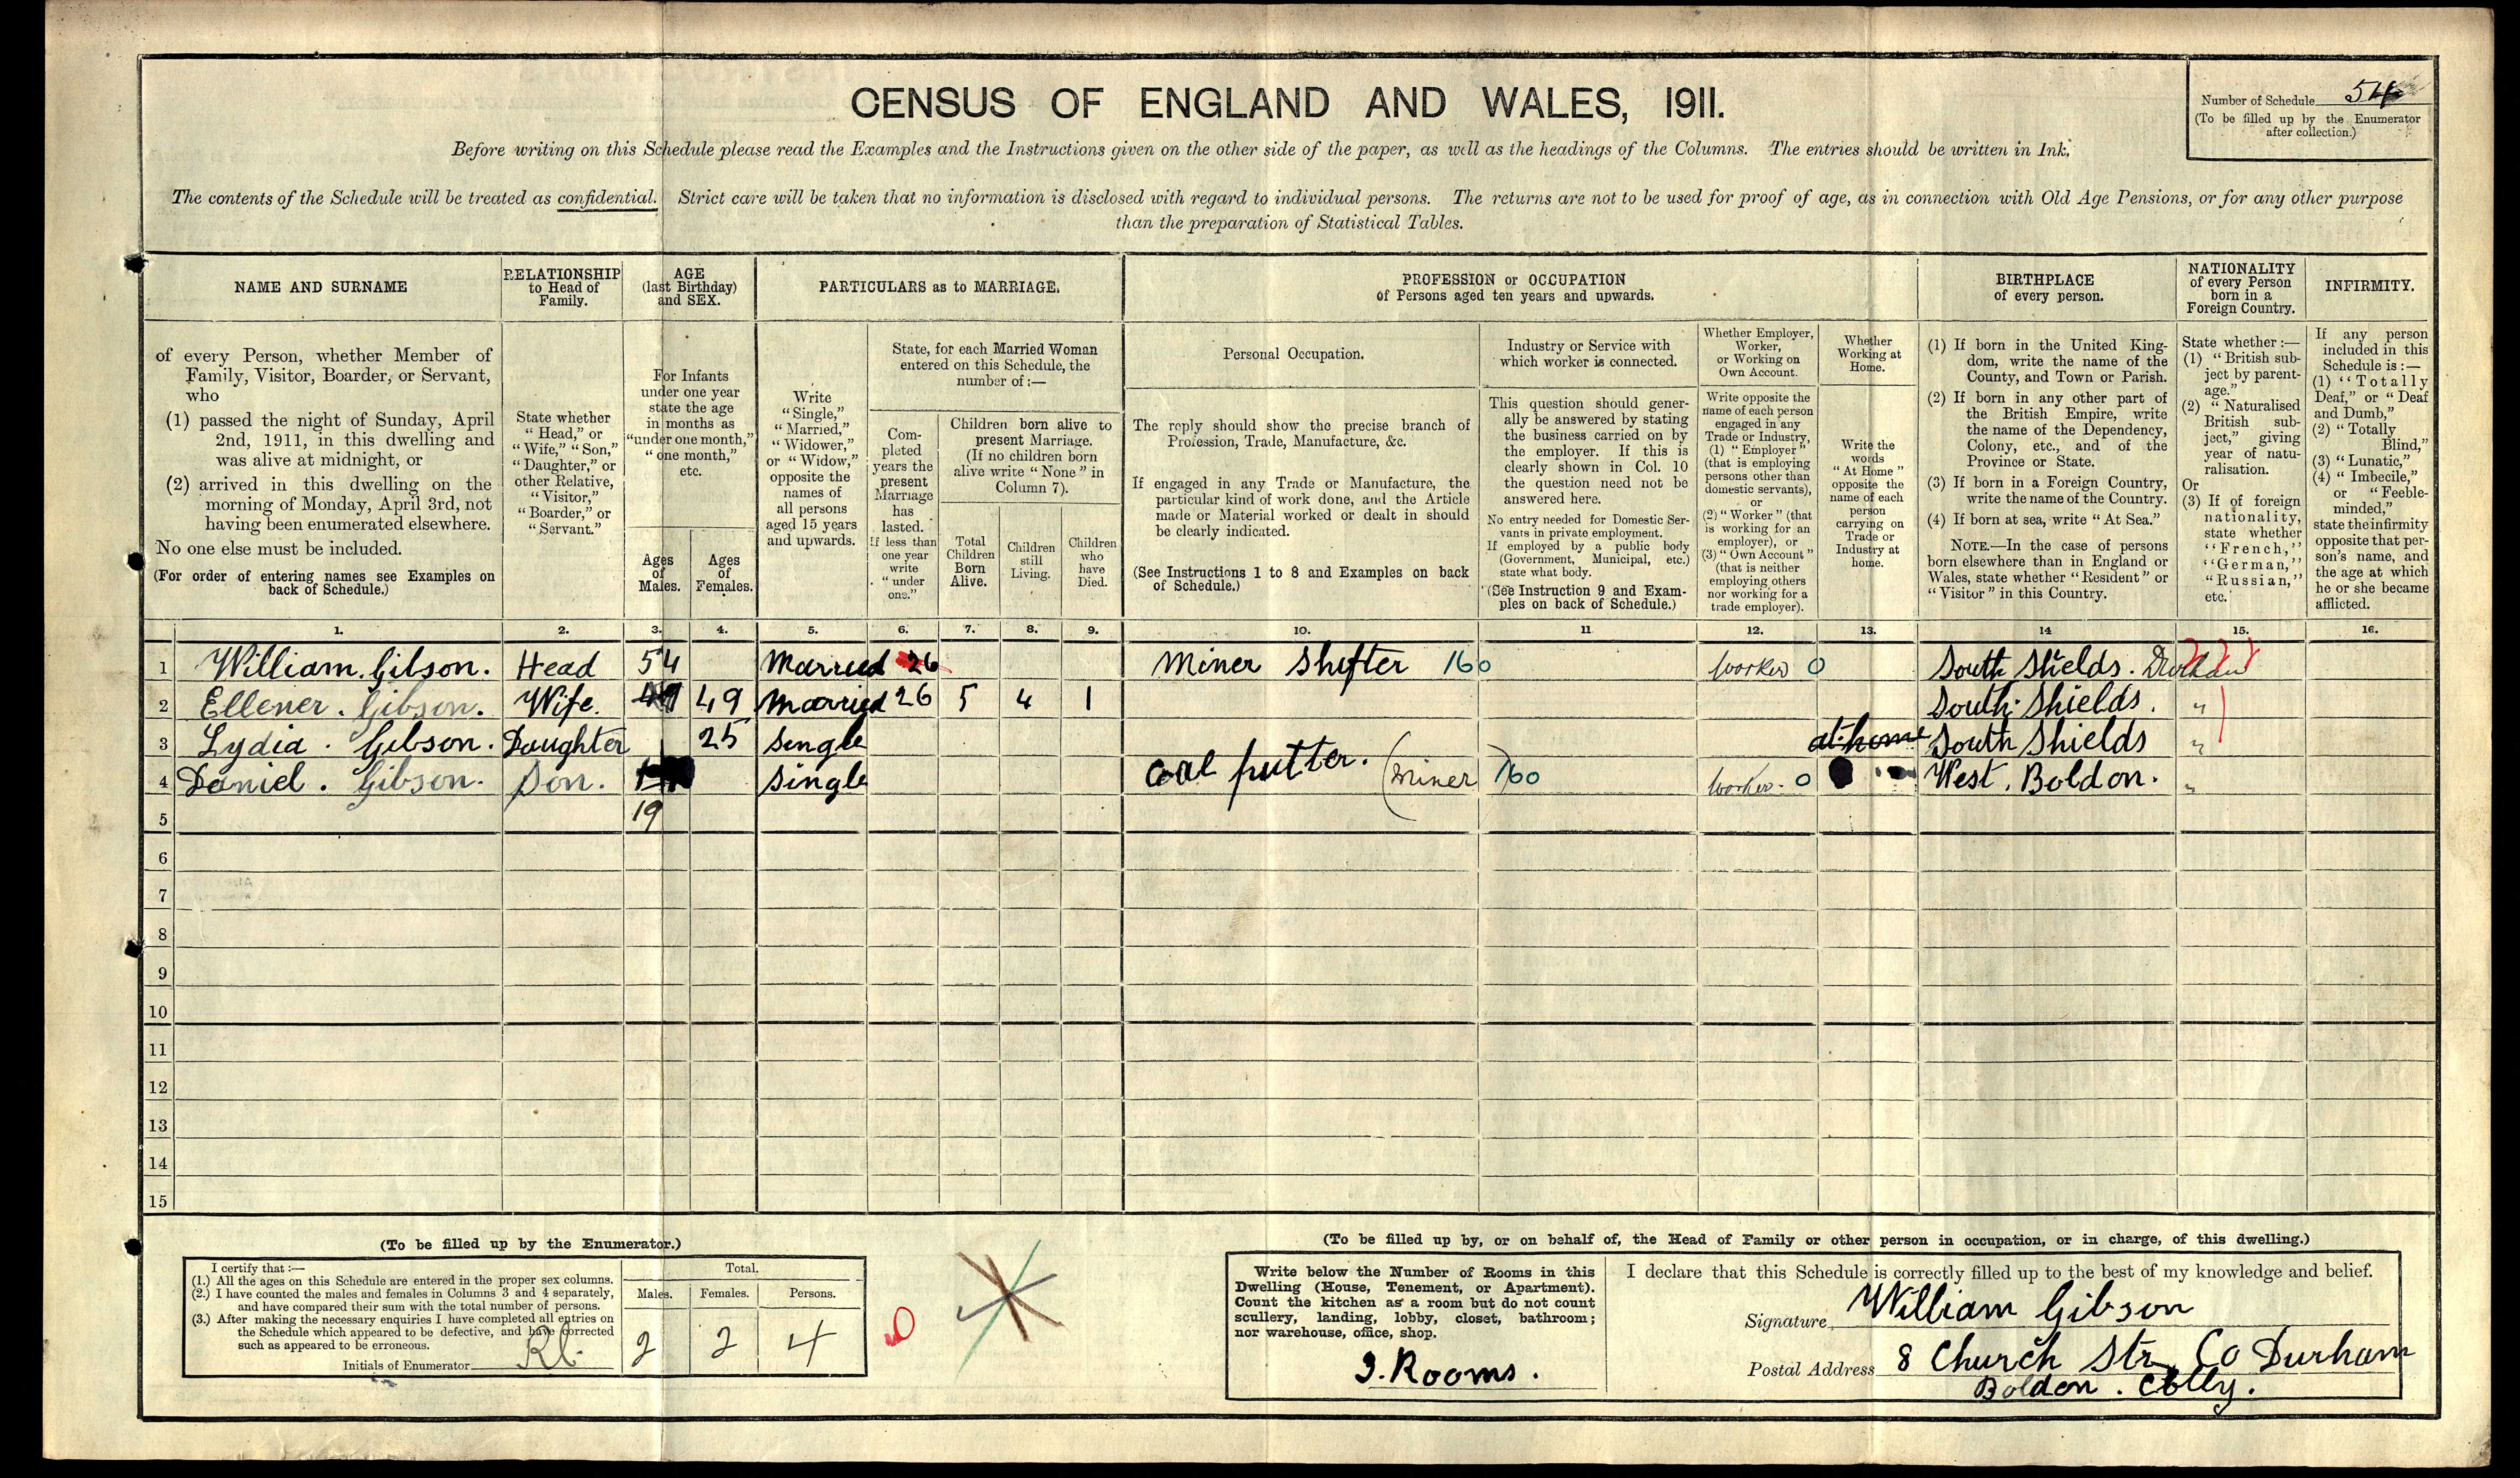 CENSUS OF ENGLAND AND WALES, 1911.
Number of Schedule 54
(To be filled up by the Enumerator
after collection.)
Before writing on this Schedule please read the Examples and the Instructions given on the other side of the paper, as well as the headings of the Columns. The entries should be written in Ink.
The contents of the Schedule will be treated as confidential. Strict care will be taken that no information is disclosed with regard to individual persons. The returns are not to be used for proof of age, as in connection with Old Age Pensions, or for any other purpose
than the preparation of Statistical Tables.
NAME AND SURNAME
of every Person, whether Member of
Family, Visitor, Boarder, or Servant,
who
(1) passed the night of Sunday, April
2nd, 1911, in this dwelling and
was alive at midnight, or
(2) arrived in this dwelling on the
morning of Monday, April 3rd, not
having been enumerated elsewhere.
No one else must be included.
(For order of entering names see Examples on
back of Schedule.)
RELATIONSHIP
to Head of
Family.
State whether
"Head," or
"Wife," "Son,"
"Daughter," or
other Relative,
"Visitor,"
"Boarder," or
"Servant."
AGE
(last Birthday)
and SEX.
For Infants
under one year
state the age
in months as
"under one month,"
"one month,"
etc.
Ages
of
Males.
Ages
of
Females.
PARTICULARS as to MARRIAGE.
Write
"Single,"
"Married,"
"Widower,"
or "Widow,"
opposite the
names of
all persons
aged 15 years
and upwards.
State, for each Married Woman
entered on this Schedule, the
number of:—
Com-
pleted
years the
present
Marriage
has
lasted.
If less than
one year
write
"under
one."
Children born alive to
present Marriage.
(If no children born
alive write "None" in
Column 7).
Total
Children
Born
Alive.
Children
still
Living.
Children
who
have
Died.
PROFESSION or OCCUPATION
of Persons aged ten years and upwards.
Personal Occupation.
The reply should show the precise branch of
Profession, Trade, Manufacture, &c.
If engaged in any Trade or Manufacture, the
particular kind of work done, and the Article
made or Material worked or dealt in should
be clearly indicated.
(See Instructions 1 to 8 and Examples on back
of Schedule.)
Industry or Service with
which worker is connected.
This question should gener-
ally be answered by stating
the business carried on by
the employer. If this is
clearly shown in Col. 10
the question need not be
answered here.
No entry needed for Domestic Ser-
vants in private employment.
If employed by a public body
(Government, Municipal, etc.)
state what body.
(See Instruction 9 and Exam-
ples on back of Schedule.)
Whether Employer,
Worker,
or Working on
Own Account.
Write opposite the
name of each person
engaged in any
Trade or Industry,
(1) "Employer"
(that is employing
persons other than
domestic servants),
or
(2) "Worker" (that
is working for an
employer), or
(3) "Own Account"
(that is neither
employing others
nor working for a
trade employer).
Whether
Working at
Home.
Write the
words
"At Home"
opposite the
name of each
person
carrying on
Trade or
Industry at
home.
BIRTHPLACE
of every person.
(1) If born in the United King-
dom, write the name of the
County, and Town or Parish.
(2) If born in any other part of
the British Empire, write
the name of the Dependency,
Colony, etc., and of the
Province or State.
(3) If born in a Foreign Country,
write the name of the Country.
(4) If born at sea, write "At Sea."
NOTE.—In the case of persons
born elsewhere than in England or
Wales, state whether "Resident" or
"Visitor" in this Country.
NATIONALITY
of every Person
born in a
Foreign Country.
State whether:—
(1) "British sub-
ject by parent-
age."
(2) "Naturalised
British sub-
ject," giving
year of natu-
ralisation.
Or
(3) If of foreign
nationality,
state whether
"French,"
"German,"
"Russian,"
etc.
INFIRMITY.
If any person
included in this
Schedule is:—
(1) "Totally
Deaf," or "Deaf
and Dumb,"
(2) "Totally
Blind,"
(3) "Lunatic,"
(4) "Imbecile,"
or "Feeble-
minded,"
state the infirmity
opposite that per-
son's name, and
the age at which
he or she became
afflicted.
1. 2. 3. 4. 5. 6. 7. 8. 9. 10. 11 12. 13. 14 15. 16.
1 William. Gibson. Head 54 Married 26 Miner Shifter 160 Worker 0 South Shields. Durham
2 Ellener. Gibson. Wife. 49 Married 26 5 4 1 South Shields. "
3 Lydia. Gibson. Daughter 25 Single at home South Shields "
4 Daniel. Gibson. Son. Single Coal putter. (Miner) 160 Worker. 0 West. Boldon. "
5 19
6
7
8
9
10
11
12
13
14
15
(To be filled up by the Enumerator.)
I certify that:—
(1.) All the ages on this Schedule are entered in the proper sex columns.
(2.) I have counted the males and females in Columns 3 and 4 separately,
and have compared their sum with the total number of persons.
(3.) After making the necessary enquiries I have completed all entries on
the Schedule which appeared to be defective, and have corrected
such as appeared to be erroneous.
Initials of Enumerator
Total.
Males. Females. Persons.
2 2 4
0
(To be filled up by, or on behalf of, the Head of Family or other person in occupation, or in charge, of this dwelling.)
Write below the Number of Rooms in this
Dwelling (House, Tenement, or Apartment).
Count the kitchen as a room but do not count
scullery, landing, lobby, closet, bathroom;
nor warehouse, office, shop.
3. Rooms.
I declare that this Schedule is correctly filled up to the best of my knowledge and belief.
Signature William Gibson
Postal Address 8 Church Str Co Durham
Boldon. Colly.